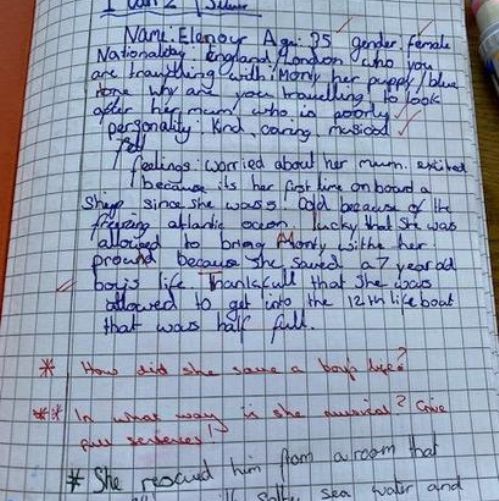 I can 2
Name: Elenour Age: 35 gender female
Nationalday England/London who you
are traviling with: Monty her puppy/blue
why are you travelling to look
after her mum who is poorly
personality: Kind, caring, musical
feelings: worried about her mum. excited
because its her first time on board a
Ship since she was 5. Cold because of the
freezing atlantic ocean. lucky that she was
allowed to bring Monty withe her
pround because she saved a 7 year old
boys life. Thankfull that she was
allowed to get into the 12th lifeboat
that was half full.
* How did she save a boy's life?
** In what way is she musical? Give
full sentences!
* She rescued him from a room that
salty sea water and